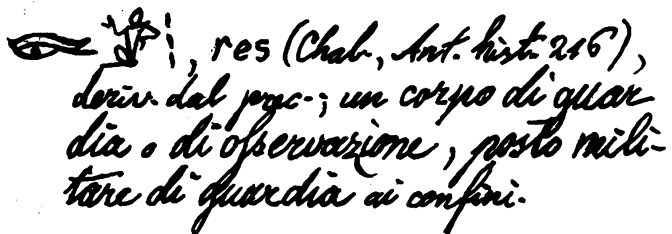 , res (Chab., Ant. hist. 216),
deriv. dal prec.; un corpo di guar
dia o di osservazione, posto mili-
tare di guardia ai confini.